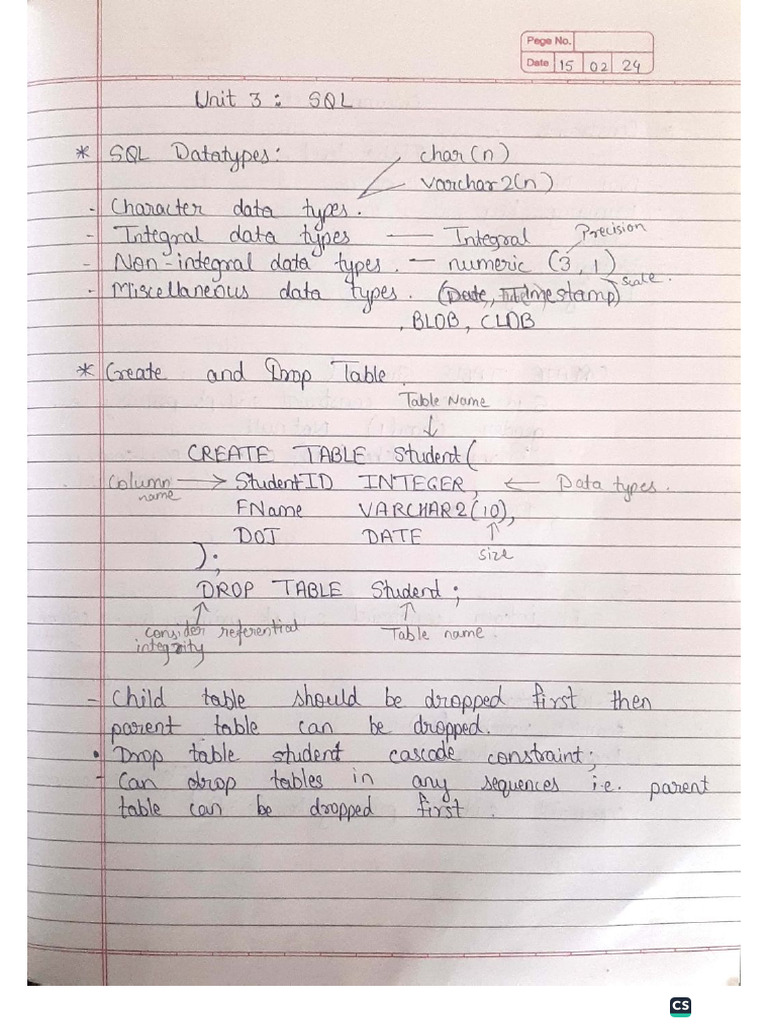 Page No.
Date 15 02 24
Unit 3 : SQL
* SQL Datatypes: char(n)
varchar2(n)
- Character data types.
- Integral data types — Integral Precision
- Non-integral data types. — numeric (3, 1)
scale.
- Miscellaneous data types. (Date, Timestamp)
, BLOB, CLOB
* Create and Drop Table.
Table Name
↓
CREATE TABLE Student(
Column name → StudentID INTEGER, ← Data types.
FName VARCHAR2(10),
DOJ DATE ↑ size
);
DROP TABLE Student;
↑ ↑
consider referential Table name.
integrity
- Child table should be dropped first then
parent table can be dropped.
• Drop table student cascade constraint;
- Can drop tables in any sequences i.e. parent
table can be dropped first.
CS